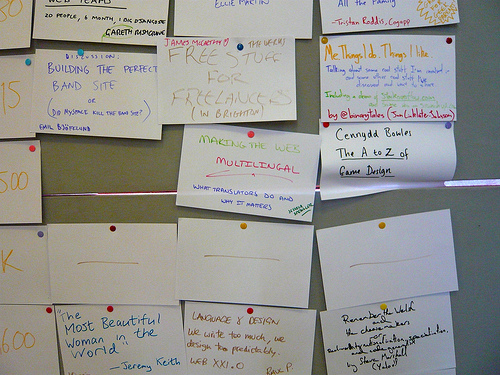 50
20 PEOPLE, 6 MONTH, 1 BIG DJANGOER
GARETH RUSHGROVE
ELLIE MARTIN
All the Family
-Tristan Roddis, Cogapp
15
DISCUSSION:
BUILDING THE PERFECT
BAND SITE
OR
(DO MYSPACE KILL THE BAND SITE?)
EMIL BJÖRKLUND
JAMES McCARTHY
FREE STUFF
FOR
FREELANCERS
(IN BRIGHTON)
Me, Things I do, Things I like
Talking about some rad stuff I'm involved in
and some other rad stuff I've
discovered and want to share
by @binarytales
500
MAKING THE WEB
MULTILINGUAL
WHAT TRANSLATORS DO AND
WHY IT MATTERS
Cennydd Bowles
The A to Z of
Game Design
K
1600
"The
Most Beautiful
Woman in the
World"
- Jeremy Keith
LANGUAGE & DESIGN
We write too much, we
design too predictably.
WEB XXI.0
PAUL P.
Remember the World
and
the cheesemakers
or
by Steve Marshall
(Yahoo!)